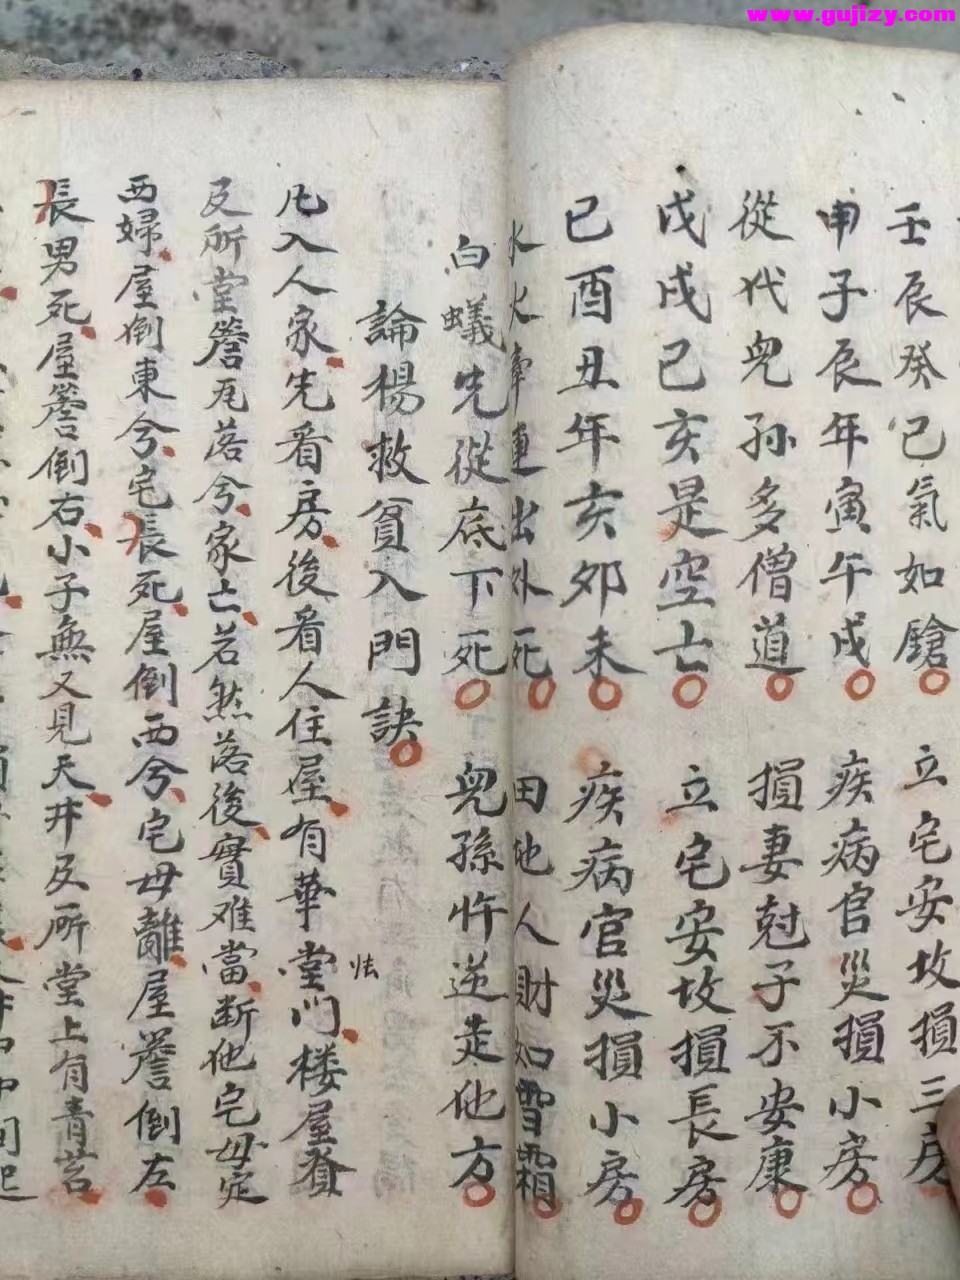 www.gujizy.com
壬辰癸巳氣如鎗 立宅安坟損三房
申子辰年寅午戌 疾病官災損小房
從代兒孫多僧道 損妻尅子不安康
戊戌己亥是空亡 立宅安坟損長房
巳酉丑年亥夘未 疾病官災損小房
水火牽連出外死 田地人財如雪霜
白蟻先從底下死 兒孫忤逆走他方
論楊救貧入門訣
凡入人家先看房後看人住屋有華堂門楼屋
怯
及所堂簷瓦落兮家亡若然落後實难當断他宅母定
西婦屋倒東兮宅長死屋倒西兮宅母離屋簷倒左
長男死屋簷倒右小子無又見天井及所堂上有青苔